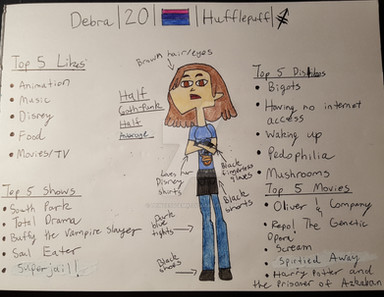 Debra | 20 | | Hufflepuff |
Top 5 Likes
• Animation
• Music
• Disney
• Food
• Movies/TV
Top 5 Shows
• South Park
Total Drama
• Buffy the Vampire Slayer
• Soul Eater
• Superjail!
Brown hair/eyes
Half
Goth-Punk
Half
Average
Loves her
Disney
shirts
Black
fingerless
gloves
Black
shorts
Dark
blue
tights
Black
shoes
Top 5 Dislikes
• Bigots
• Having no internet
access
• Waking up
• Pedophilia
• Mushrooms
Top 5 Movies
• Oliver & Company
• Repo! The Genetic
Opera
• Scream
• Spirited Away
• Harry Potter and
the Prisoner of Azkaban